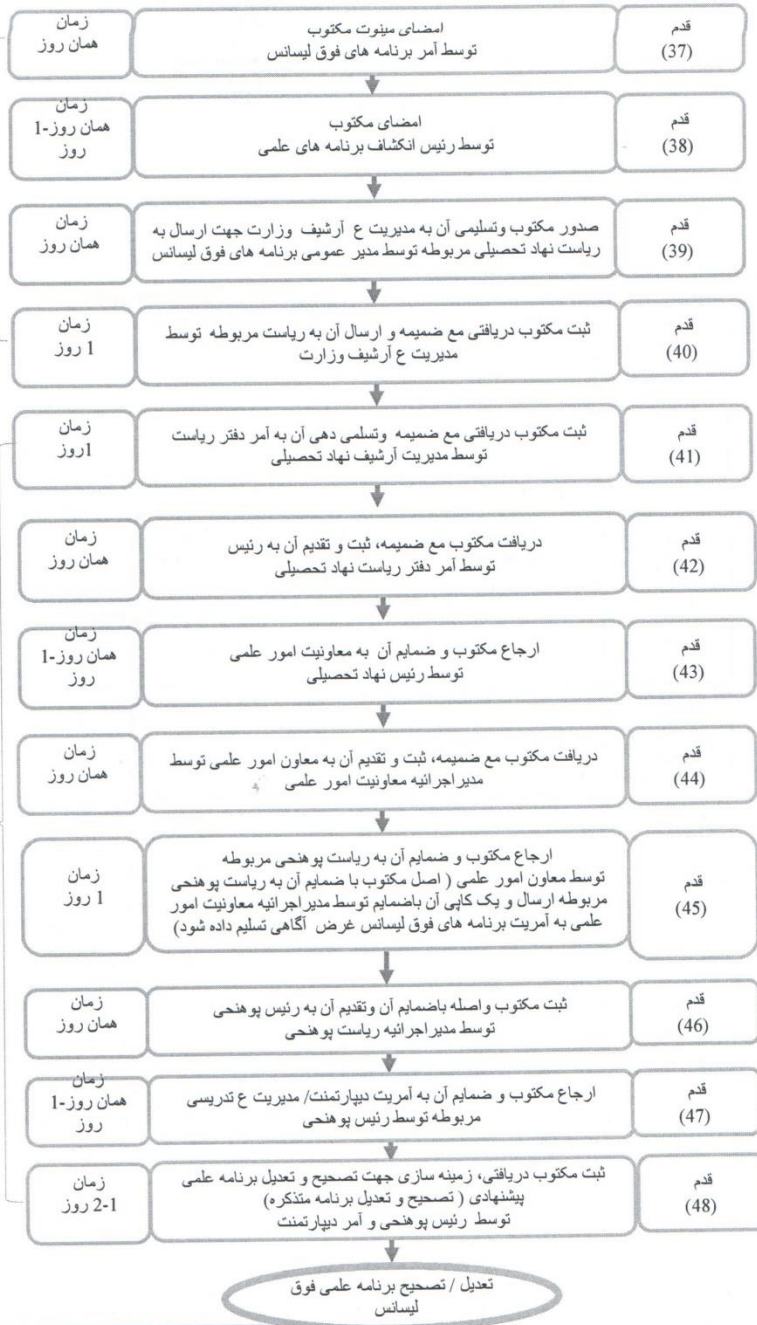 قدم
(37)
امضای مینوت مکتوب
توسط آمر برنامه های فوق لیسانس
زمان
همان روز
قدم
(38)
امضای مکتوب
توسط رئیس انکشاف برنامه های علمی
زمان
همان روز-1
روز
قدم
(39)
صدور مکتوب وتسلیمی آن به مدیریت ع آرشیف وزارت جهت ارسال به
ریاست نهاد تحصیلی مربوطه توسط مدیر عمومی برنامه های فوق لیسانس
زمان
همان روز
قدم
(40)
ثبت مکتوب دریافتی مع ضمیمه و ارسال آن به ریاست مربوطه توسط
مدیریت ع آرشیف وزارت
زمان
1 روز
قدم
(41)
ثبت مکتوب دریافتی مع ضمیمه وتسلمی دهی آن به آمر دفتر ریاست
توسط مدیریت آرشیف نهاد تحصیلی
زمان
1روز
قدم
(42)
دریافت مکتوب مع ضمیمه، ثبت و تقدیم آن به رئیس
توسط آمر دفتر ریاست نهاد تحصیلی
زمان
همان روز
قدم
(43)
ارجاع مکتوب و ضمایم آن به معاونیت امور علمی
توسط رئیس نهاد تحصیلی
زمان
همان روز-1
روز
قدم
(44)
دریافت مکتوب مع ضمیمه، ثبت و تقدیم آن به معاون امور علمی توسط
مدیر اجرائیه معاونیت امور علمی
زمان
همان روز
قدم
(45)
ارجاع مکتوب و ضمایم آن به ریاست پوهنحی مربوطه
توسط معاون امور علمی ( اصل مکتوب با ضمایم آن به ریاست پوهنحی
مربوطه ارسال و یک کاپی آن باضمایم توسط مدیر اجرائیه معاونیت امور
علمی به آمریت برنامه های فوق لیسانس غرض آگاهی تسلیم داده شود)
زمان
1 روز
قدم
(46)
ثبت مکتوب واصله باضمایم آن وتقدیم آن به رئیس پوهنحی
توسط مدیر اجرائیه ریاست پوهنحی
زمان
همان روز
قدم
(47)
ارجاع مکتوب و ضمایم آن به آمریت دیپارتمنت/ مدیریت ع تدریسی
مربوطه توسط رئیس پوهنحی
زمان
همان روز-1
روز
قدم
(48)
ثبت مکتوب دریافتی، زمینه سازی جهت تصحیح و تعدیل برنامه علمی
پیشنهادی ( تصحیح و تعدیل برنامه متذکره)
توسط رئیس پوهنحی و آمر دیپارتمنت
زمان
2-1 روز
تعدیل / تصحیح برنامه علمی فوق
لیسانس